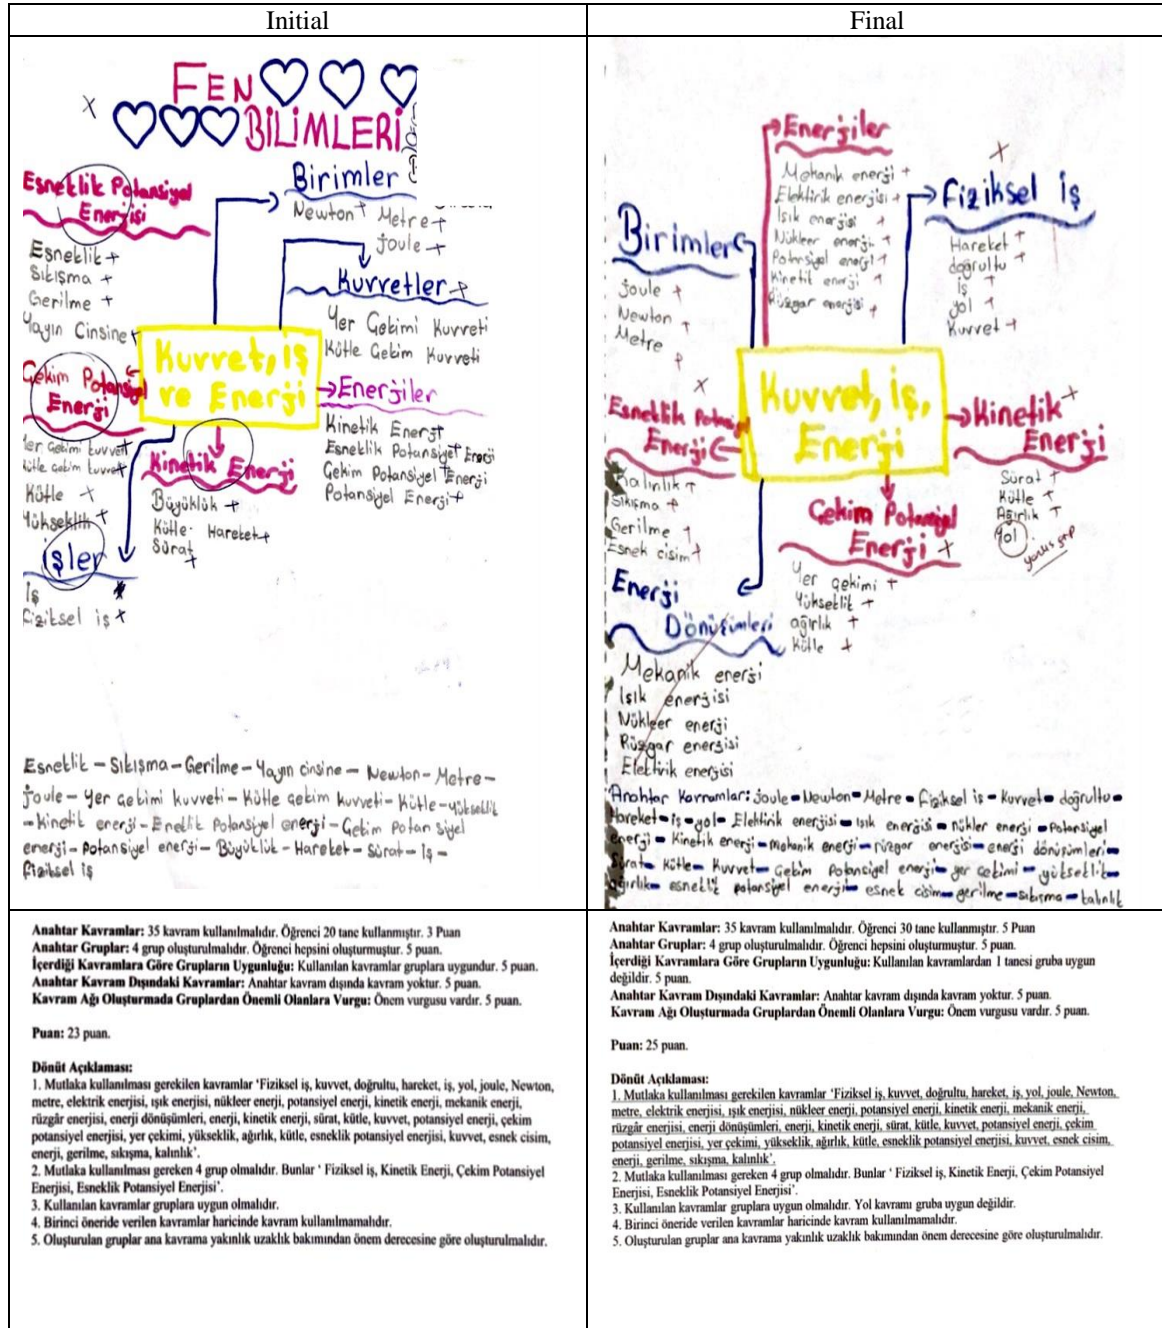 Initial
FEN
BİLİMLERİ
Esneklik Potansiyel
Enerjisi
Esneklik +
Sıkışma +
Gerilme +
Yayın Cinsine +
Birimler
Newton + Metre +
Joule +
Kuvvetler +
Yer Çekimi Kuvveti
Kütle Çekim Kuvveti
Kuvvet, iş
ve Enerji
Çekim Potansiyel
Enerji
Yer Çekimi kuvveti
kütle Çekim kuvvet
Kütle +
Yükseklik +
Enerjiler
Kinetik Enerji
Esneklik Potansiyel Enerji
Çekim Potansiyel Enerji
Potansiyel Enerji +
Kinetik Enerji
Büyüklük +
Kütle Hareket +
Sürat +
işler
İş
Fiziksel iş +
Esneklik - Sıkışma - Gerilme - Yayın cinsine - Newton - Metre -
Joule - Yer çekimi kuvveti - Kütle çekim kuvveti - Kütle - yükseklik
- Kinetik enerji - Eneklik Potansiyel enerji - Çekim Potansiyel
enerji - Potansiyel enerji - Büyüklük - Hareket - Sürat - İş -
fiziksel iş
Anahtar Kavramlar: 35 kavram kullanılmalıdır. Öğrenci 20 tane kullanmıştır. 3 Puan
Anahtar Gruplar: 4 grup oluşturulmalıdır. Öğrenci hepsini oluşturmuştur. 5 puan.
İçerdiği Kavramlara Göre Grupların Uygunluğu: Kullanılan kavramlar gruplara uygundur. 5 puan.
Anahtar Kavram Dışındaki Kavramlar: Anahtar kavram dışında kavram yoktur. 5 puan.
Kavram Ağı Oluşturmada Gruplardan Önemli Olanlara Vurgu: Önem vurgusu vardır. 5 puan.
Puan: 23 puan.
Dönüt Açıklaması:
1. Mutlaka kullanılması gerekilen kavramlar ‘Fiziksel iş, kuvvet, doğrultu, hareket, iş, yol, joule, Newton,
metre, elektrik enerjisi, ışık enerjisi, nükleer enerji, potansiyel enerji, kinetik enerji, mekanik enerji,
rüzgâr enerjisi, enerji dönüşümleri, enerji, kinetik enerji, sürat, kütle, kuvvet, potansiyel enerji, çekim
potansiyel enerjisi, yer çekimi, yükseklik, ağırlık, kütle, esneklik potansiyel enerjisi, kuvvet, esnek cisim,
enerji, gerilme, sıkışma, kalınlık’.
2. Mutlaka kullanılması gereken 4 grup olmalıdır. Bunlar ‘ Fiziksel iş, Kinetik Enerji, Çekim Potansiyel
Enerjisi, Esneklik Potansiyel Enerjisi’.
3. Kullanılan kavramlar gruplara uygun olmalıdır.
4. Birinci öneride verilen kavramlar haricinde kavram kullanılmamalıdır.
5. Oluşturulan gruplar ana kavrama yakınlık uzaklık bakımından önem derecesine göre oluşturulmalıdır.
Final
Enerjiler
Mekanik enerji +
Elektirik enerjisi +
Işık enerjisi +
Nükleer enerji +
Potansiyel enerji +
Kinetik enerji +
Rüzgar enerjisi +
Fiziksel iş
Hareket +
doğrultu +
iş +
yol +
Kuvvet +
Birimler
Joule +
Newton +
Metre
Esneklik Potansiyel
Enerji
Kalınlık +
Sıkışma +
Gerilme +
Esnek cisim +
Kuvvet, iş,
Enerji
Kinetik +
Enerji
Sürat +
Kütle +
Ağırlık +
Yol
Çekim Potansiyel
Enerji +
Yer çekimi +
Yükseklik +
ağırlık +
kütle +
Enerji
Dönüşümleri
Mekanik enerji
Işık enerjisi
Nükleer enerji
Rüzgar enerjisi
Elektirik enerjisi
Anahtar Kavramlar: Joule - Newton - Metre - Fiziksel iş - Kuvvet - doğrultu -
Hareket - iş - yol - Elektirik enerjisi - ışık enerjisi - nükler enerji - Potansiyel
enerji - Kinetik enerji - Mekanik enerji - rüzgar enerjisi - enerji dönüşümleri -
Sürat - Kütle - Kuvvet - Çekim Potansiyel enerji - yer çekimi - yükseklik -
ağırlık - esneklik potansiyel enerji - esnek cisim - gerilme - sıkışma - kalınlık
Anahtar Kavramlar: 35 kavram kullanılmalıdır. Öğrenci 30 tane kullanmıştır. 5 Puan
Anahtar Gruplar: 4 grup oluşturulmalıdır. Öğrenci hepsini oluşturmuştur. 5 puan.
İçerdiği Kavramlara Göre Grupların Uygunluğu: Kullanılan kavramlardan 1 tanesi gruba uygun
değildir. 5 puan.
Anahtar Kavram Dışındaki Kavramlar: Anahtar kavram dışında kavram yoktur. 5 puan.
Kavram Ağı Oluşturmada Gruplardan Önemli Olanlara Vurgu: Önem vurgusu vardır. 5 puan.
Puan: 25 puan.
Dönüt Açıklaması:
1. Mutlaka kullanılması gerekilen kavramlar ‘Fiziksel iş, kuvvet, doğrultu, hareket, iş, yol, joule, Newton,
metre, elektrik enerjisi, ışık enerjisi, nükleer enerji, potansiyel enerji, kinetik enerji, mekanik enerji,
rüzgâr enerjisi, enerji dönüşümleri, enerji, kinetik enerji, sürat, kütle, kuvvet, potansiyel enerji, çekim
potansiyel enerjisi, yer çekimi, yükseklik, ağırlık, kütle, esneklik potansiyel enerjisi, kuvvet, esnek cisim,
enerji, gerilme, sıkışma, kalınlık’.
2. Mutlaka kullanılması gereken 4 grup olmalıdır. Bunlar ‘ Fiziksel iş, Kinetik Enerji, Çekim Potansiyel
Enerjisi, Esneklik Potansiyel Enerjisi’.
3. Kullanılan kavramlar gruplara uygun olmalıdır. Yol kavramı gruba uygun değildir.
4. Birinci öneride verilen kavramlar haricinde kavram kullanılmamalıdır.
5. Oluşturulan gruplar ana kavrama yakınlık uzaklık bakımından önem derecesine göre oluşturulmalıdır.